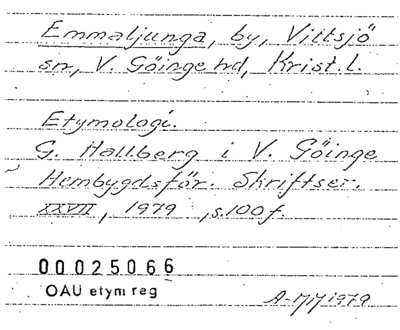 Emmaljunga, by, Vittsjö
sn, V. Göinge hd, Krist. l.
Etymologi.
G. Hallberg i V. Göinge
Hembygdsför. Skriftser.
XXVII, 1979, s. 100 f.
00025066
OAU etym reg
1979